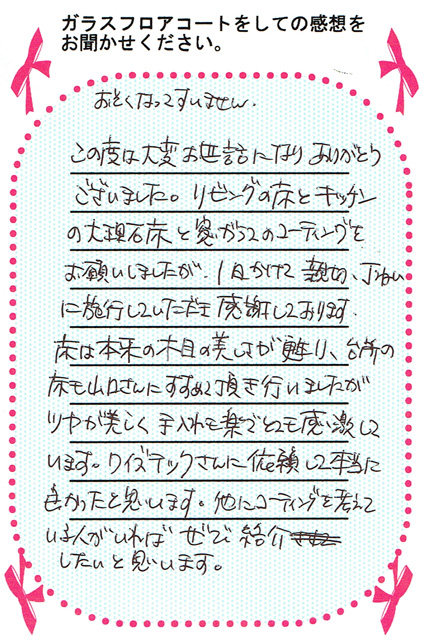 ガラスフロアコートをしての感想を
お聞かせください。
おそくなってすいません.
この度は大変お世話になり ありがとう
ございました。リビングの床とキッチン
の大理石床と窓ガラスのコーティングを
お願いしましたが、1日かけて 親切、丁ねい
に施行していただき 感謝しております.
床は本来の木目の美しさが 甦り、台所の
床も山口さんにすすめて頂き 行いましたが
ツヤが美しく 手入れも楽でとても感激して
います。ワイズテックさんに依頼して本当に
良かったと思います。他にコーティングを考えて
いる人がいれば ぜひ 紹介
したいと思います。